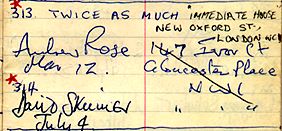 313. TWICE AS MUCH IMMEDIATE HOUSE
NEW OXFORD ST.
LONDON WC1
Andrew Rose 147 Ivor Ct
Mar 12. Gloucester Place
NW1
314
David Skinner " " "
July 4